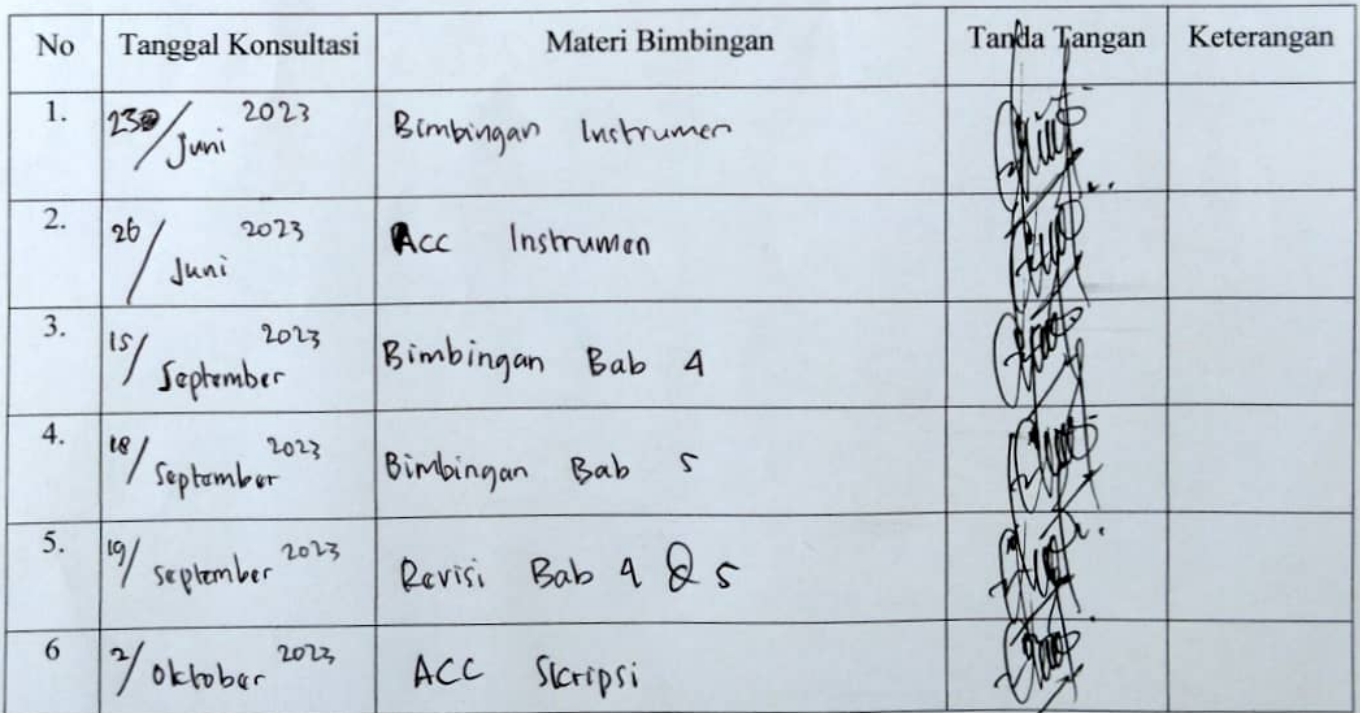 No Tanggal Konsultasi Materi Bimbingan Tanda Tangan Keterangan
1. 23/Juni 2023 Bimbingan Instrumen
2. 26/Juni 2023 Acc Instrumen
3. 15/September 2023 Bimbingan Bab 4
4. 18/September 2023 Bimbingan Bab 5
5. 19/September 2023 Revisi Bab 4 & 5
6 2/Oktober 2023 ACC Skripsi